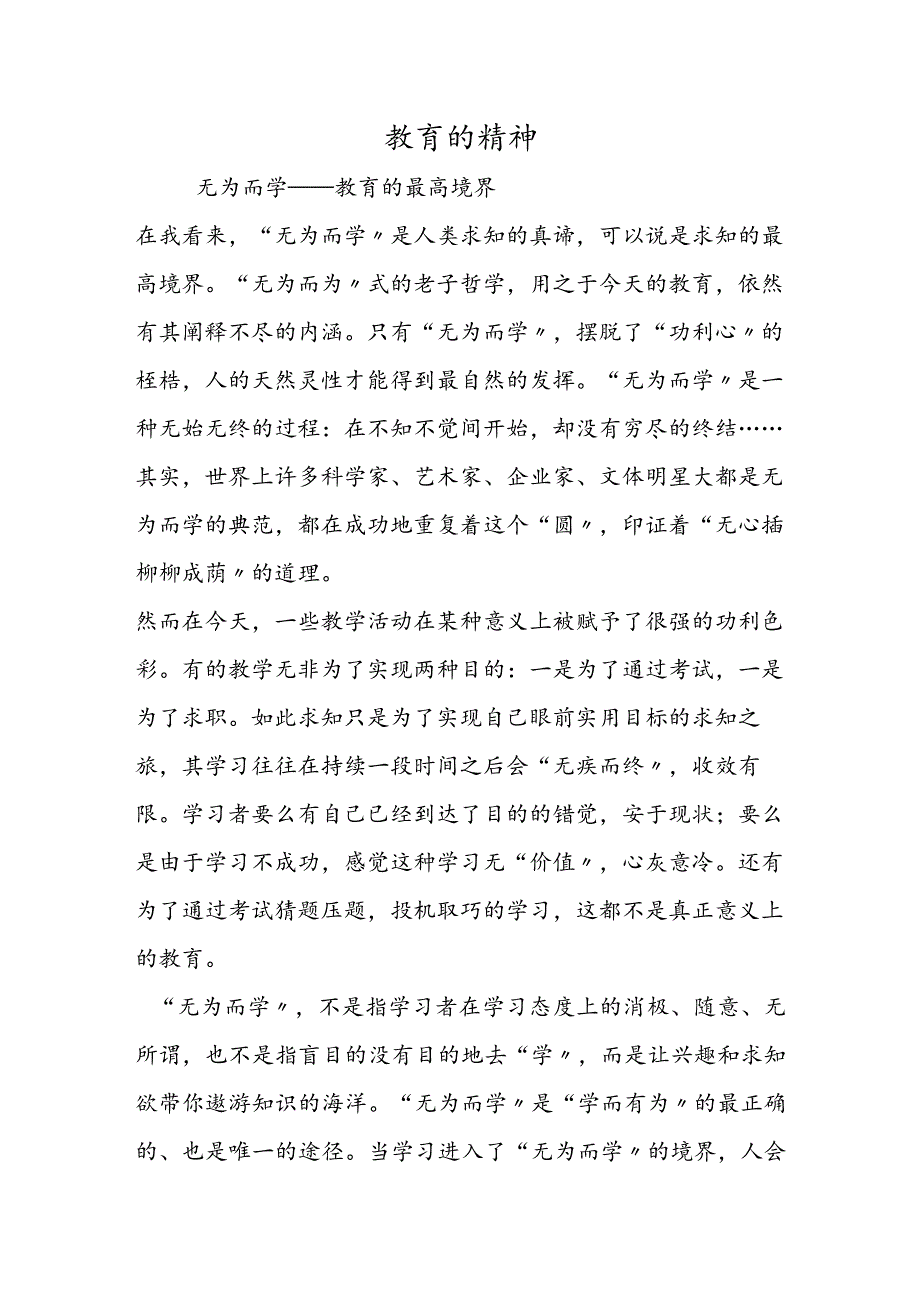 教育的精神
无为而学——教育的最高境界
在我看来，“无为而学〃是人类求知的真谛，可以说是求知的最
高境界。“无为而为〃式的老子哲学，用之于今天的教育，依然
有其阐释不尽的内涵。只有“无为而学〃，摆脱了“功利心〃的
桎梏，人的天然灵性才能得到最自然的发挥。“无为而学〃是一
种无始无终的过程：在不知不觉间开始，却没有穷尽的终结……
其实，世界上许多科学家、艺术家、企业家、文体明星大都是无
为而学的典范，都在成功地重复着这个“圆〃，印证着“无心插
柳柳成荫〃的道理。
然而在今天，一些教学活动在某种意义上被赋予了很强的功利色
彩。有的教学无非为了实现两种目的：一是为了通过考试，一是
为了求职。如此求知只是为了实现自己眼前实用目标的求知之
旅，其学习往往在持续一段时间之后会“无疾而终〃，收效有
限。学习者要么有自己已经到达了目的的错觉，安于现状；要么
是由于学习不成功，感觉这种学习无“价值〃，心灰意冷。还有
为了通过考试猜题压题，投机取巧的学习，这都不是真正意义上
的教育。
“无为而学〃，不是指学习者在学习态度上的消极、随意、无
所谓，也不是指盲目的没有目的地去“学〃，而是让兴趣和求知
欲带你遨游知识的海洋。“无为而学〃是“学而有为〃的最正确
的、也是唯一的途径。当学习进入了“无为而学〃的境界，人会